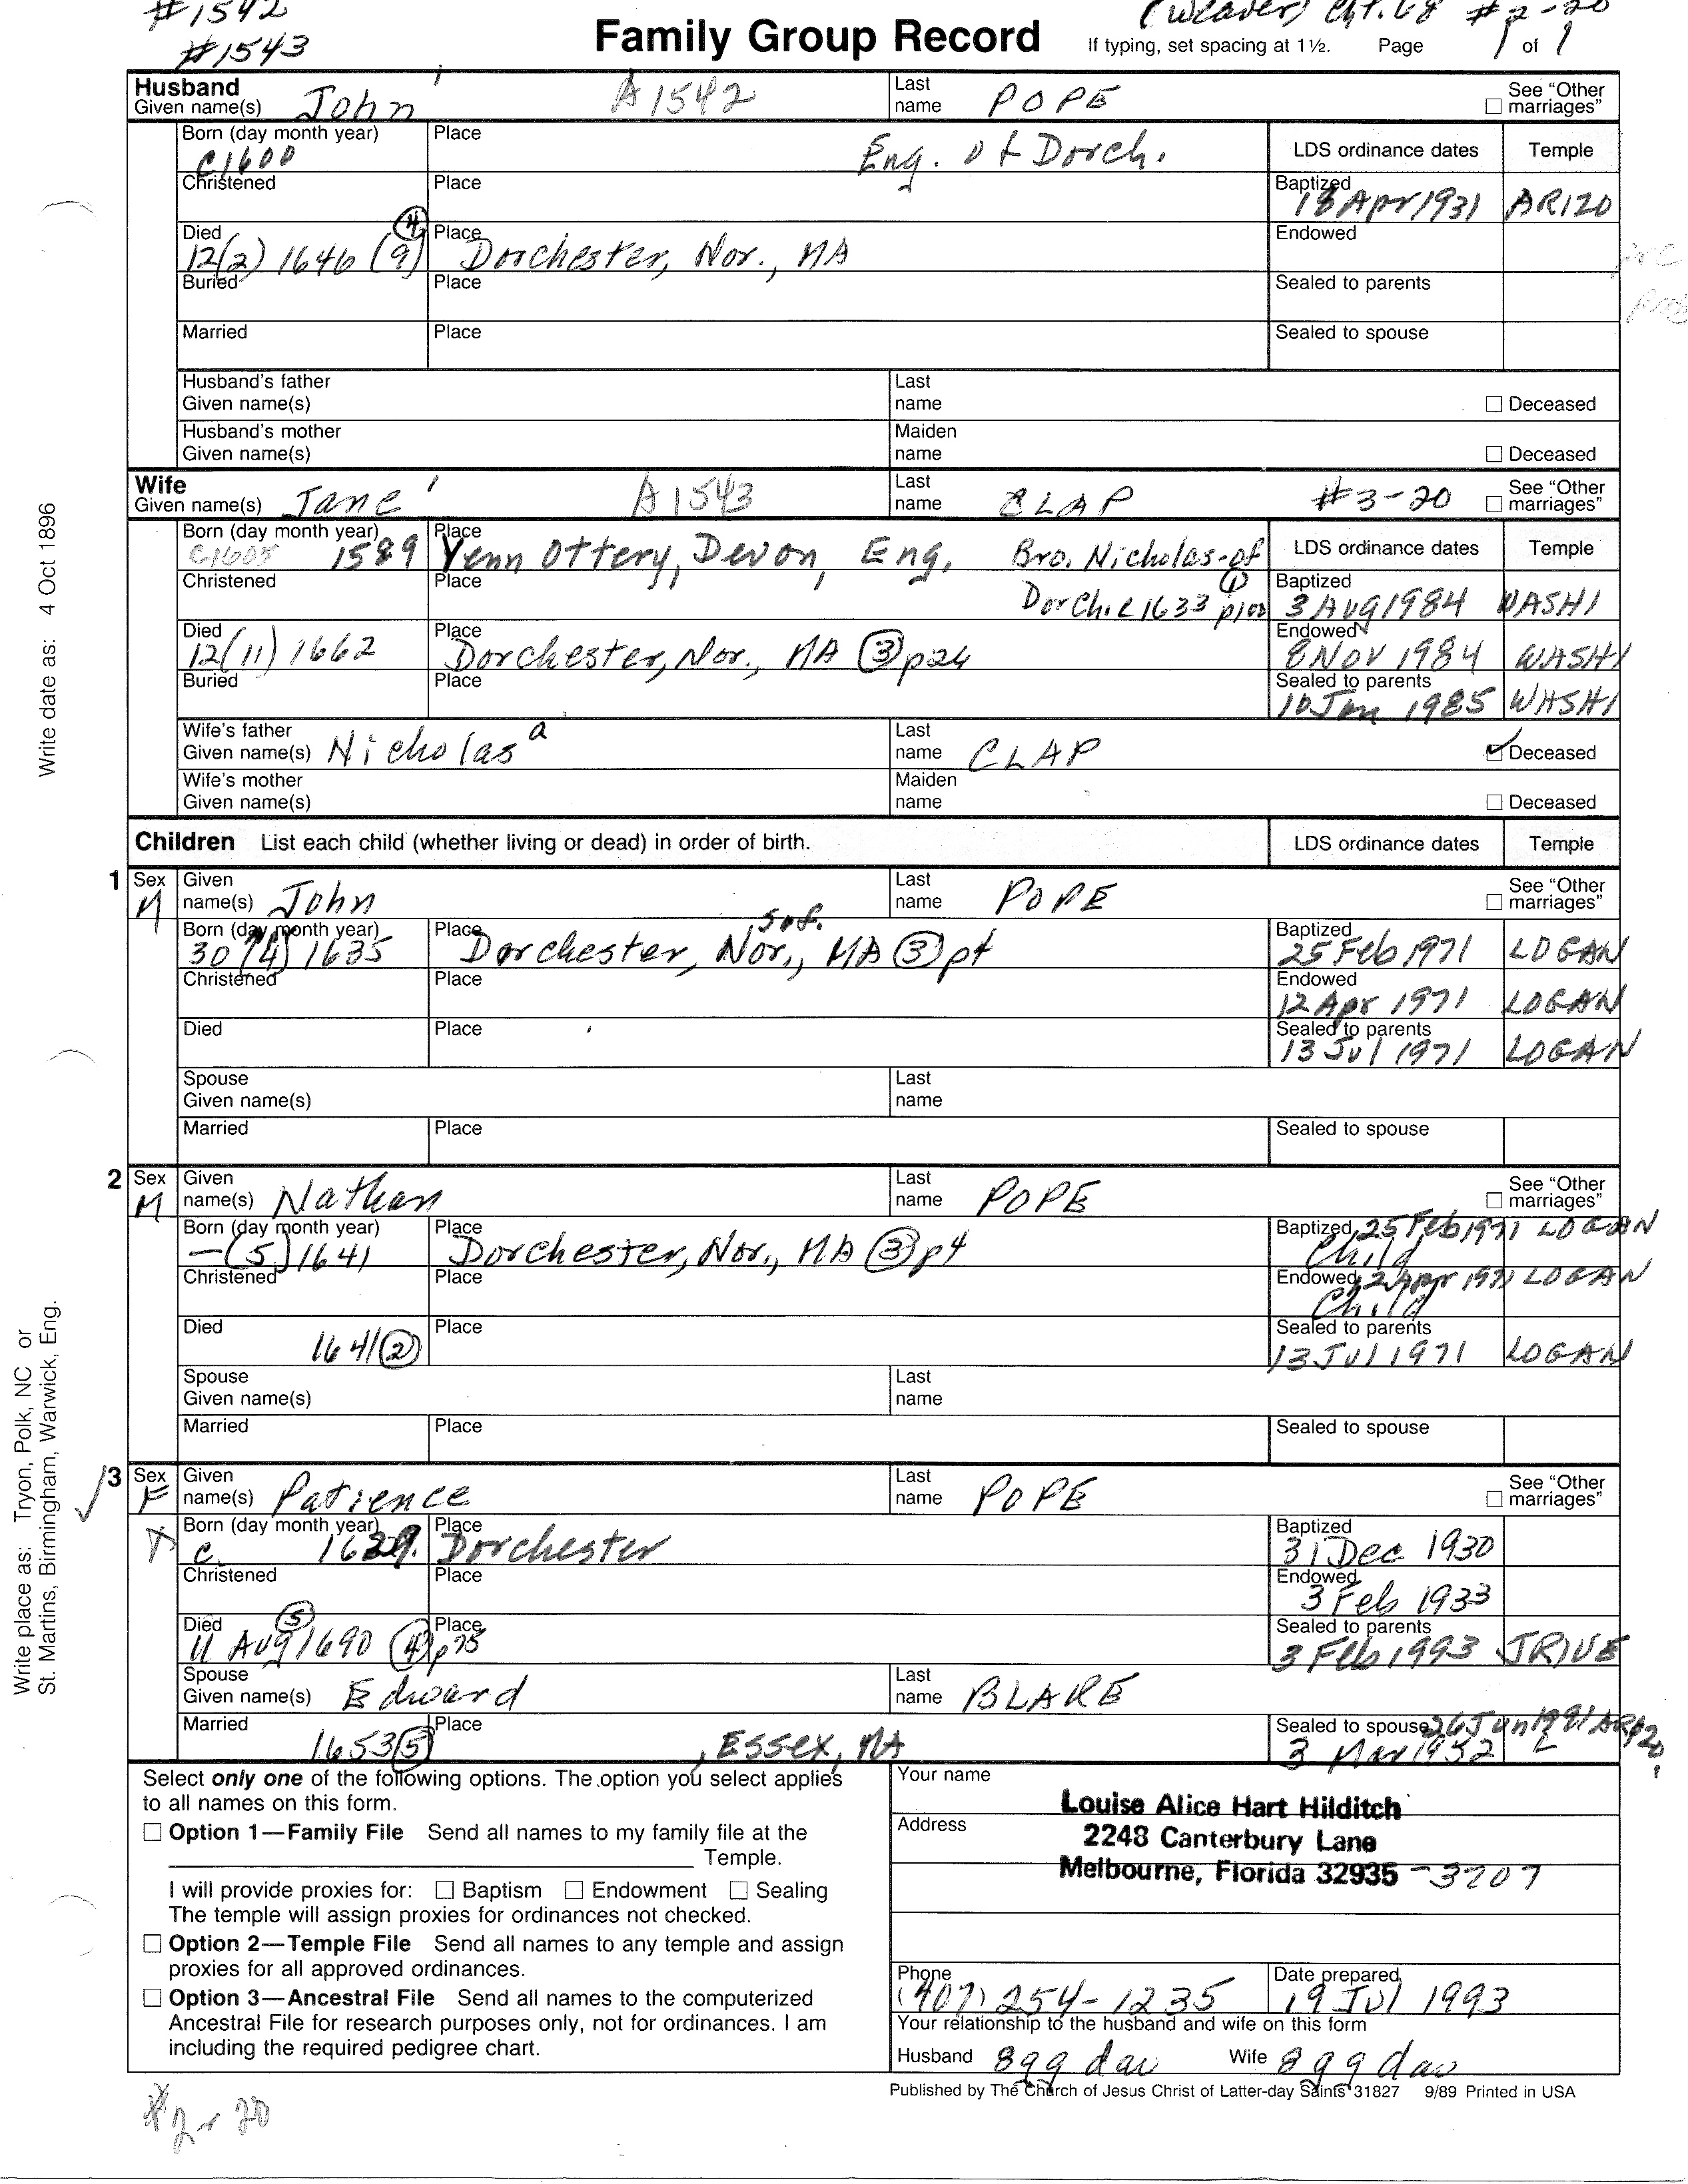 #1542 (Weaver) Cht. 68 #2-20
#1543 Family Group Record If typing, set spacing at 1½. Page 1 of 1
Husband
Given name(s) John A1542 Last name POPE ☐ See "Other marriages"
Born (day month year) C1600 Place Eng. of Dorch. LDS ordinance dates Temple
Christened Place Baptized 18 Apr 1931 ARIZO
Died 12(2) 1646 (9) ④ Place Dorchester, Nor., MA Endowed
Buried Place Sealed to parents
Married Place Sealed to spouse
Husband's father
Given name(s) Last name ☐ Deceased
Husband's mother
Given name(s) Maiden name ☐ Deceased
Wife
Given name(s) Jane A1543 Last name CLAP #3-20 ☐ See "Other marriages"
Born (day month year) C1605 1589 Place Venn Ottery, Devon, Eng. Bro. Nicholas-of LDS ordinance dates Temple
Christened Place Dorch. c1633 ① p100 Baptized 3 Aug 1984 WASHI
Died 12(11) 1662 Place Dorchester, Nor., MA ③ p24 Endowed 8 Nov 1984 WASHI
Buried Place Sealed to parents 10 Jan 1985 WASHI
Wife's father
Given name(s) Nicholas a Last name CLAP ☑ Deceased
Wife's mother
Given name(s) Maiden name ☐ Deceased
Children List each child (whether living or dead) in order of birth. LDS ordinance dates Temple
1 Sex M Given name(s) John Last name POPE ☐ See "Other marriages"
Born (day month year) 30 (4) 1635 Place Dorchester, Suf. Nor., MA ③ p4 Baptized 25 Feb 1971 LOGAN
Christened Place Endowed 12 Apr 1971 LOGAN
Died Place Sealed to parents 13 Jul 1971 LOGAN
Spouse
Given name(s) Last name
Married Place Sealed to spouse
2 Sex M Given name(s) Nathan Last name POPE ☐ See "Other marriages"
Born (day month year) —(5) 1641 Place Dorchester, Nor., MA ③ p4 Baptized 25 Feb 1971 LOGAN Child
Christened Place Endowed 12 Apr 1971 LOGAN Child
Died 1641 ② Place Sealed to parents 13 Jul 1971 LOGAN
Spouse
Given name(s) Last name
Married Place Sealed to spouse
3 Sex F Given name(s) Patience Last name POPE ☐ See "Other marriages"
Born (day month year) c. Place Dorchester Baptized 31 Dec 1930
Christened Place Endowed 3 Feb 1933
Died 11 Aug 1690 ⑤ ④ p75 Place Sealed to parents 3 Feb 1993 JRIVE
Spouse
Given name(s) Edward Last name BLAKE
Married 1653 ⑤ Place , Essex, MA Sealed to spouse 26 Jun 1991 ARIZO
3 Mar 1952 L
Select only one of the following options. The option you select applies
to all names on this form.
☐ Option 1—Family File Send all names to my family file at the
Temple.
I will provide proxies for: ☐ Baptism ☐ Endowment ☐ Sealing
The temple will assign proxies for ordinances not checked.
☐ Option 2—Temple File Send all names to any temple and assign
proxies for all approved ordinances.
☐ Option 3—Ancestral File Send all names to the computerized
Ancestral File for research purposes only, not for ordinances. I am
including the required pedigree chart.
Your name Louise Alice Hart Hilditch
Address 2248 Canterbury Lane
Melbourne, Florida 32935 -3207
Phone (407) 254-1235 Date prepared 19 Jul 1993
Your relationship to the husband and wife on this form
Husband 8gg dau Wife 8gg dau
Published by The Church of Jesus Christ of Latter-day Saints 31827 9/89 Printed in USA
#2-20
Write date as: 4 Oct 1896
Write place as: Tryon, Polk, NC or
St. Martins, Birmingham, Warwick, Eng.